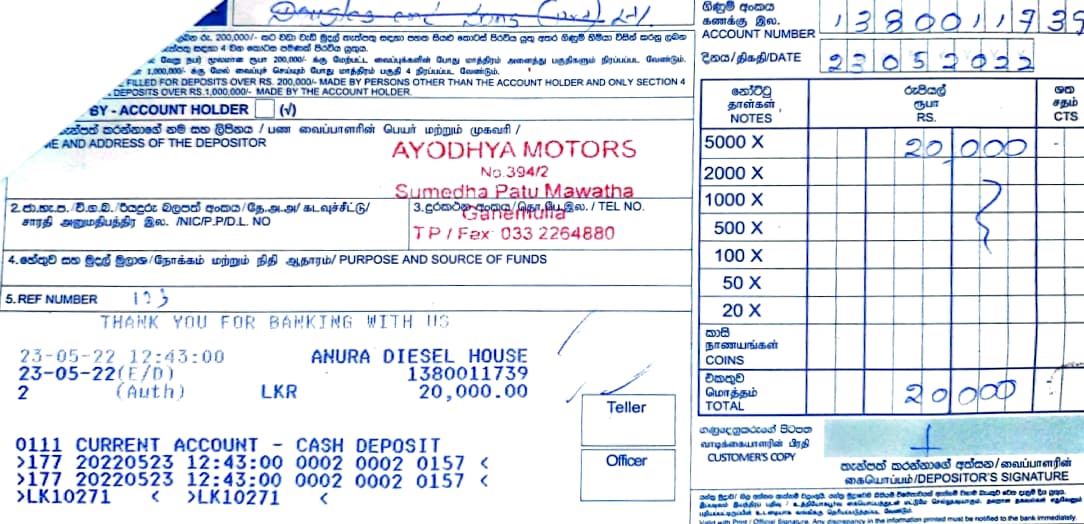 Douglas and Sons (Pvt) Ltd.
ගිණුම් අංකය
கணக்கு இல.
ACCOUNT NUMBER
1380011739
දිනය/திகதி/DATE
23052022
රු. 200,000/- කට වඩා වැඩි මුදල් තැන්පතු සඳහා
FILLED FOR DEPOSITS OVER RS. 200,000/- MADE BY PERSONS OTHER THAN THE ACCOUNT HOLDER AND ONLY SECTION 4
DEPOSITS OVER RS.1,000,000/- MADE BY THE ACCOUNT HOLDER.
BY - ACCOUNT HOLDER (√)
තැන්පත් කරන්නාගේ නම සහ ලිපිනය / பண வைப்பாளரின் பெயர் மற்றும் முகவரி /
ME AND ADDRESS OF THE DEPOSITOR
AYODHYA MOTORS
No.394/2
Sumedha Patu Mawatha
Ganemulla
TP / Fax 033 2264880
2.ජා.හැ.ප./වි.ග.බ./රියදුරු බලපත් අංකය/தே.அ.அ/கடவுச்சீட்டு/
சாரதி அனுமதிபத்திர இல. /NIC/P.P/D.L. NO
3.දුරකථන අංකය/தொ.பே.இல. / TEL NO.
4.හේතුව සහ මුදල් මූලාශ්‍ර/நோக்கம் மற்றும் நிதி ஆதாரம்/ PURPOSE AND SOURCE OF FUNDS
5.REF NUMBER 123
THANK YOU FOR BANKING WITH US
23-05-22 12:43:00 ANURA DIESEL HOUSE
23-05-22(E/D) 1380011739
2 (Auth) LKR 20,000.00
Teller
Officer
0111 CURRENT ACCOUNT - CASH DEPOSIT
>177 20220523 12:43:00 0002 0002 0157 <
>177 20220523 12:43:00 0002 0002 0157 <
>LK10271 < >LK10271 <
නෝට්ටු
தாள்கள்
NOTES
රුපියල්
ரூபா
RS.
ශත
சதம்
CTS
5000 X 20,000 -
2000 X
1000 X
500 X
100 X
50 X
20 X
කාසි
நாணயங்கள்
COINS
එකතුව
மொத்தம்
TOTAL
20000
ගනුදෙනුකරුගේ පිටපත
வாடிக்கையாளரின் பிரதி
CUSTOMER'S COPY
තැන්පත් කරන්නාගේ අත්සන/வைப்பாளரின்
கையொப்பம்/DEPOSITOR'S SIGNATURE
Valid with Print / Official Signature. Any discrepancy in the information printed must be notified to the bank immediately.